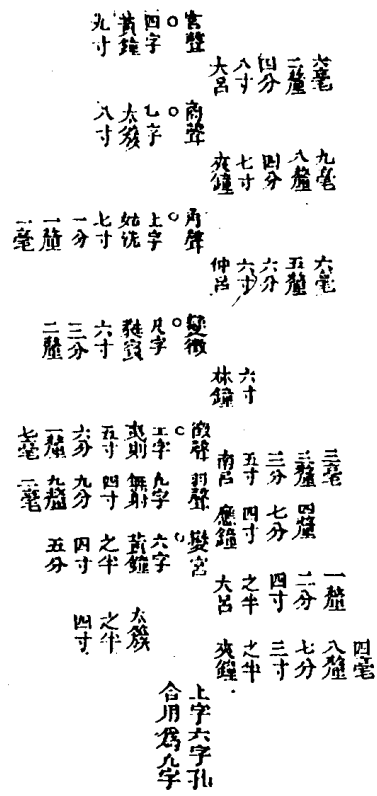 宮聲○四字黃鐘九寸
大呂八寸四分二釐六毫
商聲○乙字太簇八寸
夾鐘七寸四分八釐九毫
角聲○上字姑洗七寸一分一釐一毫
仲呂六寸六分五釐六毫
變徵○凡字蕤賓六寸三分二釐
林鐘六寸
徵聲○工字夷則五寸六分一釐七毫
南呂五寸三分三釐三毫
羽聲九字無射四寸九分九釐二毫
應鐘四寸七分四釐
變宮○六字黃鐘之半四寸五分
大呂之半四寸二分一釐
太簇之半四寸
夾鐘之半三寸七分八釐四毫
上字六字孔
合用爲九字